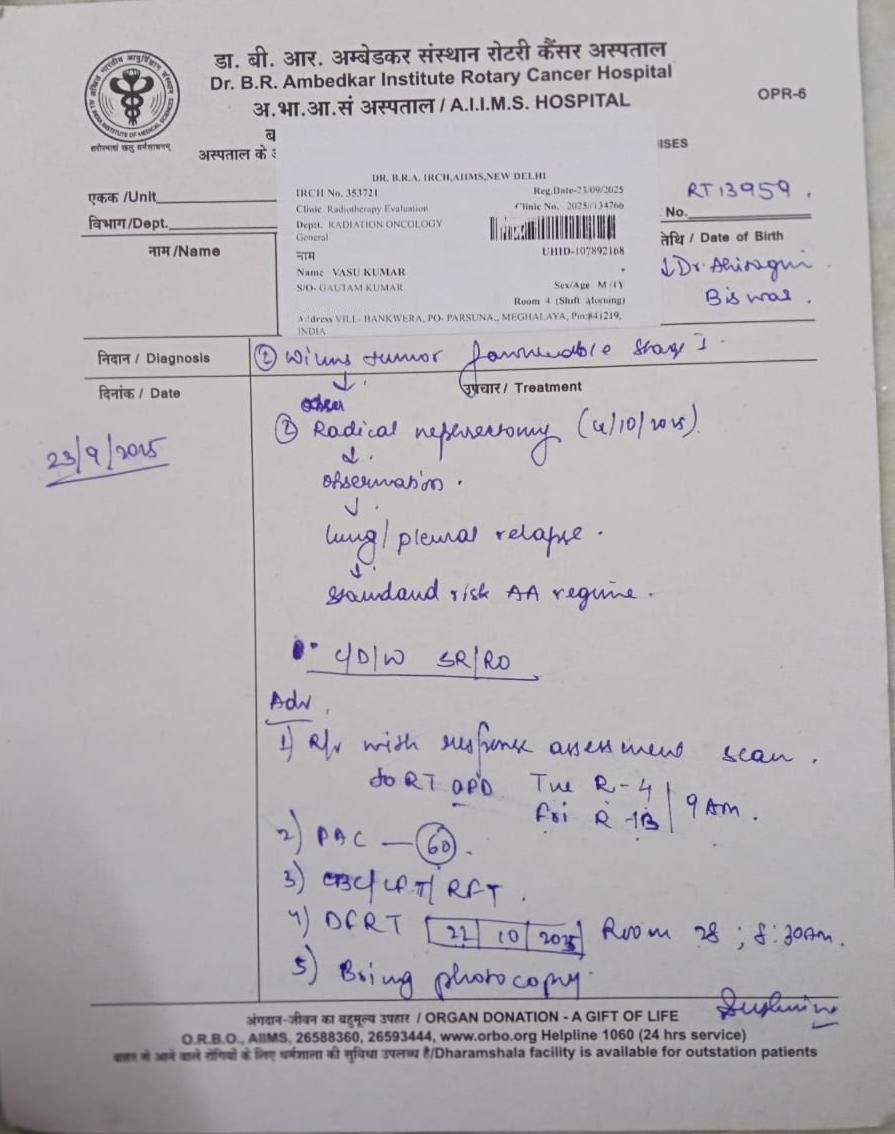 डा. बी. आर. अम्बेडकर संस्थान रोटरी कैंसर अस्पताल
Dr. B.R. Ambedkar Institute Rotary Cancer Hospital
अ.भा.आ.सं अस्पताल / A.I.I.M.S. HOSPITAL
OPR-6
शरीरमाद्यं खलु धर्मसाधनम्
अस्पताल के
ISES
DR. B.R.A. IRCH,AIIMS,NEW DELHI
IRCH No. 353721
Reg.Date-23/09/2025
Clinic Radiotherapy Evaluation
Clinic No. 2025//134766
Deptt. RADIATION ONCOLOGY
General
UHID-107892168
नाम
Name VASU KUMAR
S/O- GAUTAM KUMAR
Sex/Age M
Room 4 (Shift
Address VILL- BANKWERA, PO- PARSUNA,, MEGHALAYA, Pin:841219,
INDIA
एकक /Unit
विभाग/Dept.
RT13959.
No.
नाम /Name
तिथि / Date of Birth
↓Dr.
Biswas.
निदान / Diagnosis
Wilms tumor stage I
दिनांक / Date
उपचार/ Treatment
23/9/2025
② Radical nephrectomy (4/10/2025)
↓.
observation.
↓.
lung/pleural relapse.
↓.
standard risk AA regime.
C/D/W SR/RO
Adv,
1) R/v with response assessment scan.
to RT OPD Tue R-4
Fri R-1B
9 Am.
2) PAC — 60.
3) CBC/LFT/RFT.
4) DCRT 22/10/2025 Room 28; 8:30Am.
5) Bring photocopy.
अंगदान-जीवन का बहुमूल्य उपहार / ORGAN DONATION - A GIFT OF LIFE
O.R.B.O., AIIMS, 26588360, 26593444, www.orbo.org Helpline 1060 (24 hrs service)
बाहर से आने वाले रोगियों के लिए धर्मशाला की सुविधा उपलब्ध है/Dharamshala facility is available for outstation patients